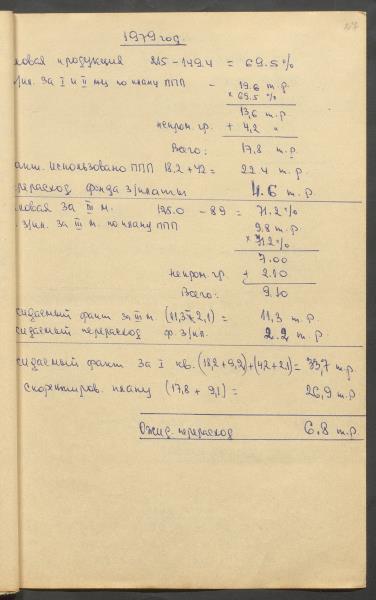 1979 год.
ловая продукция 215 - 149.4 = 69.5%
/пл. за I и II м-ц по плану ППП - 19.6 т.р.
× 69.5 %
13,6 т.р.
непром. гр. + 4,2 "
Всего: 17,8 т.р.
акт. использовано ППП 18,2 + 4,2 = 22.4 т.р.
перерасход фонда з/платы 4.6 т.р.
ловая за III м. 125.0 - 89 = 71.2%
з/пл. за III м. по плану ППП 9.8 т.р
× 71.2%
7.00
непром. гр + 2.10
Всего: 9.10
жидаемый факт за III м. 2,1) = 11,3 т.р.
жидаемый перерасход ф. з/пл. 2.2 т.р.
жидаемый факт за I кв. (18,2 + 9,2) + (4,2 + 2,1) = 33,7 т.р
скорректиров. плану (17,8 + 9,1) = 26,9 т.р
Ожид. перерасход 6,8 т.р